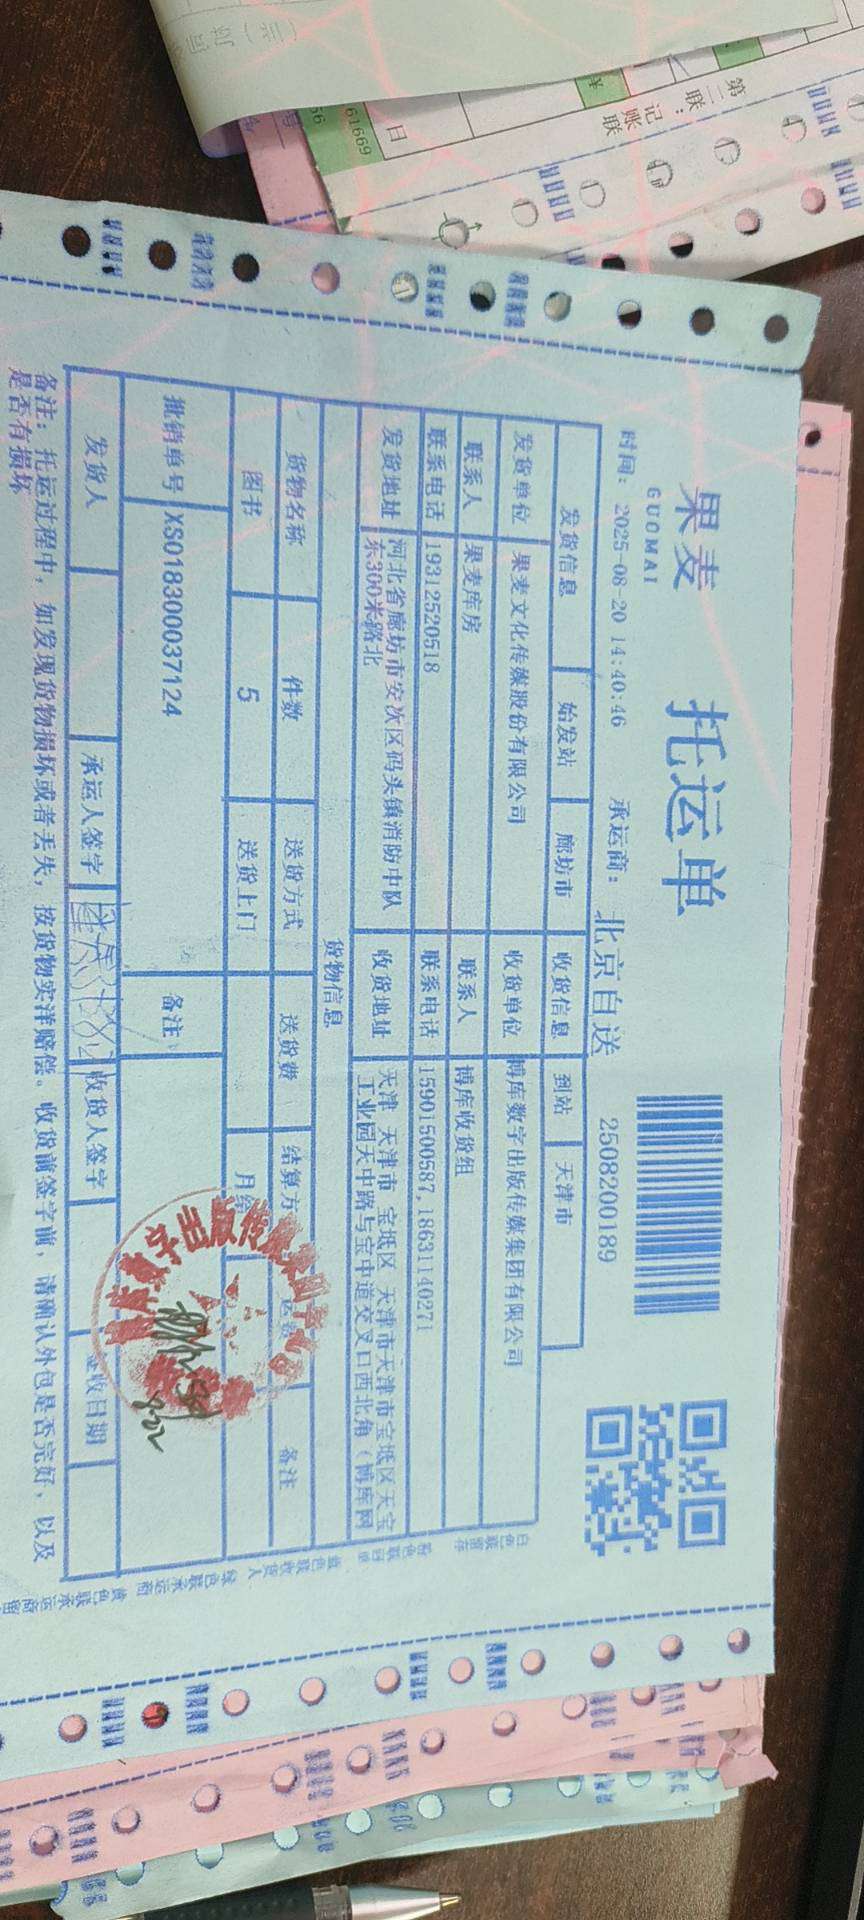 果麦
GUOMAI
托运单
时间：2025-08-20 14:40:46 承运商：北京自送 2508200189
发货信息 始发站 廊坊市 收货信息 到站 天津市
发货单位 果麦文化传媒股份有限公司 收货单位 博库数字出版传媒集团有限公司
联系人 果麦库房 联系人 博库收货组
联系电话 19312520518 联系电话 15901500587,18631140271
发货地址 河北省廊坊市安次区码头镇消防中队东300米路北 收货地址 天津 天津市 宝坻区 天津市天津市宝坻区天宝工业园天中路与宝中道交叉口西北角（博库网
货物信息
货物名称 件数 送货方式 送货费 结算方 运费 备注
图书 5 送货上门 月结
批销单号 XS018300037124 备注
发货人 承运人签字 收货人签字 签收日期
备注：托运过程中，如发现货物损坏或者丢失，按货物实洋赔偿。收货前签字前，请确认外包是否完好，以及
是否有损坏
8.22
第三联：记账联
61669
日